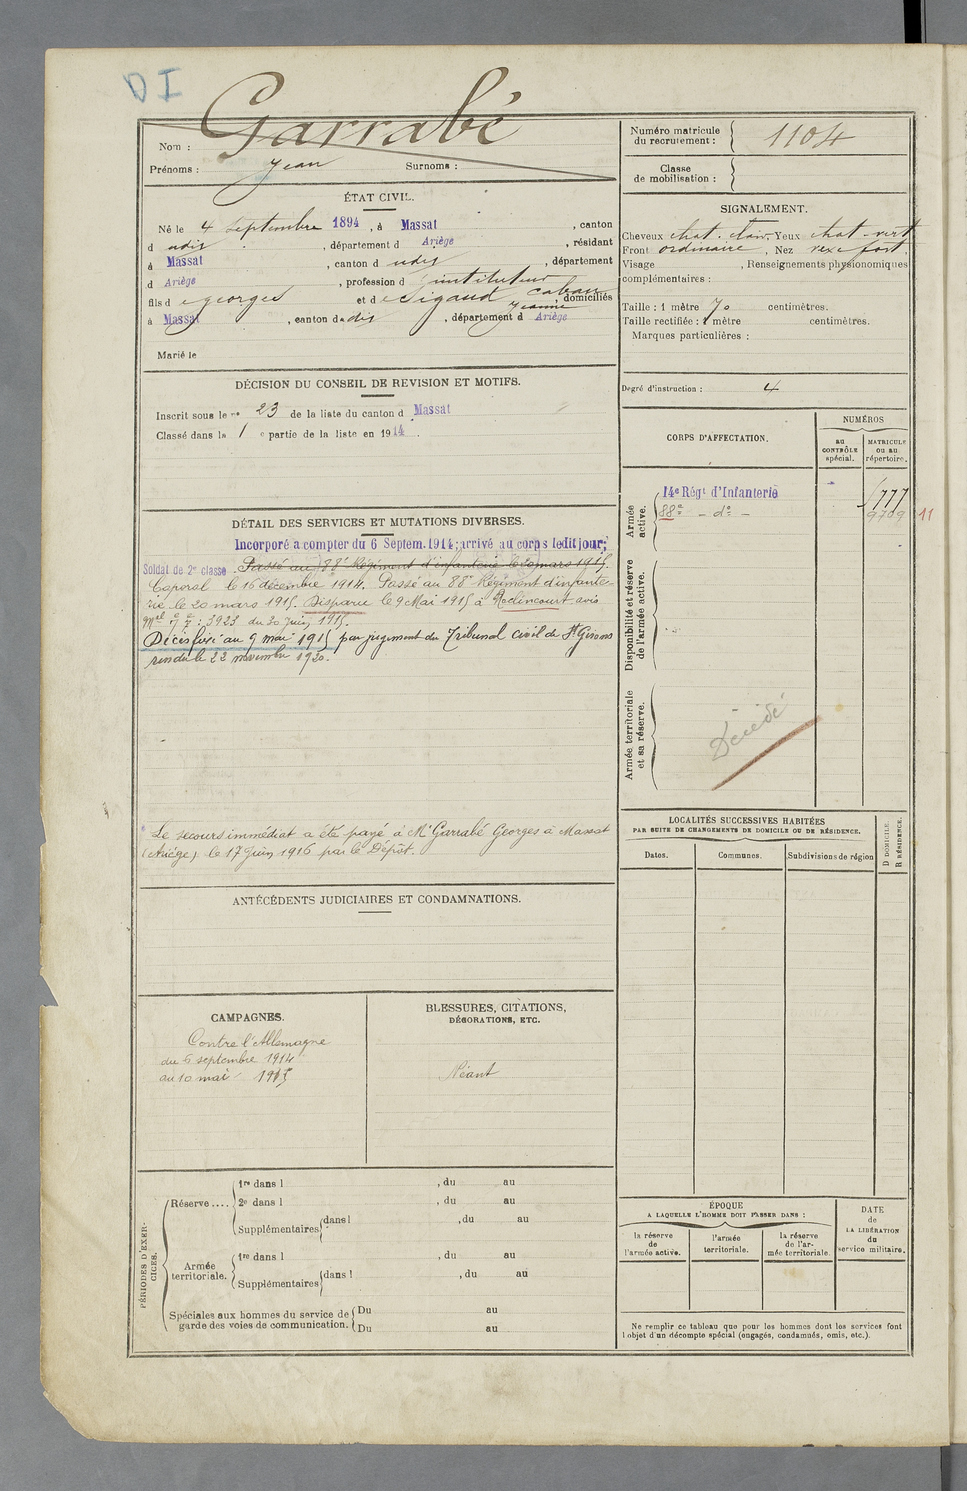 DI
Garrabé
Nom :
Prénoms : Jean Surnoms :
Numéro matricule du recrutement : 1104
Classe de mobilisation :
ÉTAT CIVIL.
Né le 4 septembre 1894, à Massat, canton
d udis, département d Ariège, résidant
à Massat, canton d udis, département
d Ariège, profession d instituteur
fils d e Georges et d e Sigaud Caban Jeanne, domiciliés
à Massat, canton dudis, département d Ariège
Marié le
SIGNALEMENT.
Cheveux chat. clair, Yeux chat. vert
Front ordinaire, Nez fort,
Visage , Renseignements physionomiques
complémentaires :
Taille : 1 mètre 70 centimètres.
Taille rectifiée : 1 mètre centimètres.
Marques particulières :
Degré d'instruction : 4
DÉCISION DU CONSEIL DE REVISION ET MOTIFS.
Inscrit sous le no 23 de la liste du canton d Massat
Classé dans la 1 e partie de la liste en 1914.
CORPS D'AFFECTATION.
NUMÉROS
AU CONTRÔLE spécial.
MATRICULE OU AU répertoire.
Armée active.
14e Régt d'Infanterie 1777
88e - do - 9709 11
Disponibilité et réserve de l'armée active.
Armée territoriale et sa réserve.
Décédé
DÉTAIL DES SERVICES ET MUTATIONS DIVERSES.
Incorporé a compter du 6 Septem. 1914; arrivé au corps ledit jour;
Soldat de 2e classe. Passé au 88e Régiment d'infanterie le 20 mars 1915.
Caporal le 16 décembre 1914. Passé au 88e Régiment d'infante-
rie le 20 mars 1915. Disparu le 9 Mai 1915 à Roclincourt avis
Mel : 3923 du 30 Juin 1915.
Décès fixé au 9 mai 1915 par jugement du Tribunal civil de St Girons
rendu le 22 novembre 1920.
Le secours immédiat a été payé à Mr Garrabé Georges à Massat
(Ariège) le 17 Juin 1916 par le Dépôt.
LOCALITÉS SUCCESSIVES HABITÉES
PAR SUITE DE CHANGEMENTS DE DOMICILE OU DE RÉSIDENCE.
Dates. Communes. Subdivisions de région
D DOMICILE.
R RÉSIDENCE.
ANTÉCÉDENTS JUDICIAIRES ET CONDAMNATIONS.
CAMPAGNES.
Contre l'Allemagne
du 6 septembre 1914
au 10 mai 1915
BLESSURES, CITATIONS,
DÉCORATIONS, ETC.
Néant
PÉRIODES D'EXERCICES.
Réserve....
1re dans l , du au
2e dans l , du au
Supplémentaires dans l , du au
Armée territoriale.
1re dans l , du au
Supplémentaires dans l , du au
Spéciales aux hommes du service de garde des voies de communication.
Du au
Du au
ÉPOQUE
A LAQUELLE L'HOMME DOIT PASSER DANS :
la réserve de l'armée active.
l'armée territoriale.
la réserve de l'armée territoriale.
DATE de LA LIBÉRATION du service militaire.
Ne remplir ce tableau que pour les hommes dont les services font
l'objet d'un décompte spécial (engagés, condamnés, omis, etc.).